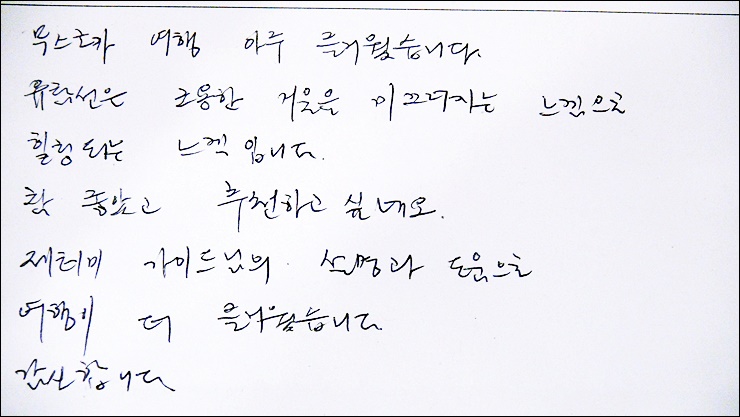 무스코카 여행 아주 즐거웠습니다.
유람선은 조용한 거울을 미끄러지는 느낌으로
힐링되는 느낌입니다.
참 좋았고 추천하고 싶네요.
제레미 가이드님의 설명과 도움으로
여행이 더 즐거웠습니다
감사합니다